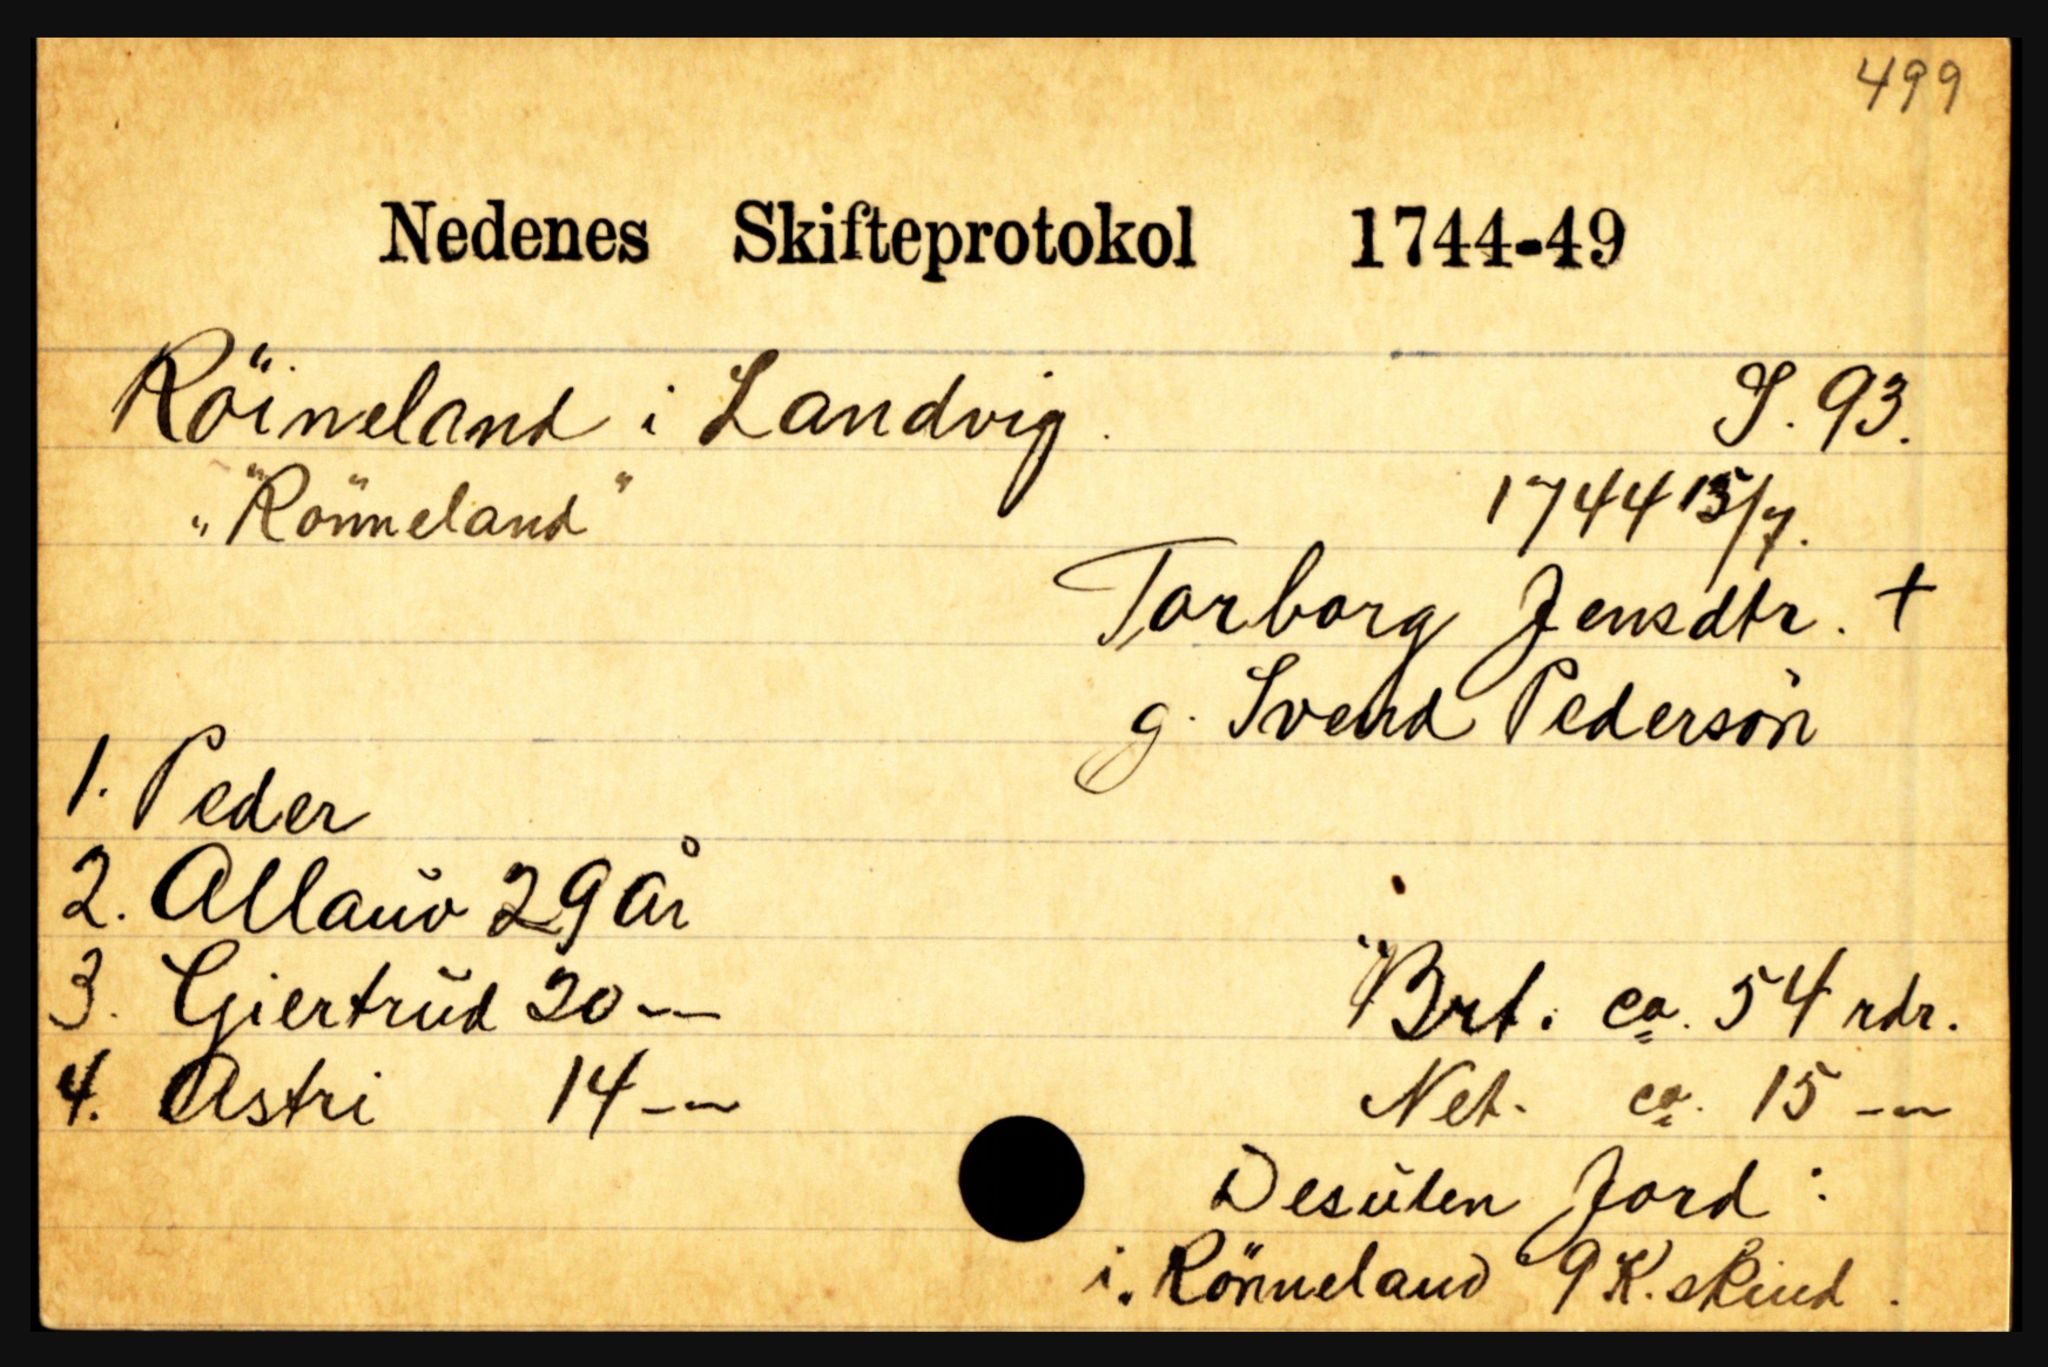 499
Nedenes Skifteprotokol 1744-49
Röineland i Landvig. S. 93.
"Rönneland" 1744 15/7.
Torborg Jensdtr. +
g. Svend Pedersön
1. Peder
2. Allauv 29 År
3. Gjertrud 20 — Brt. ca. 54 rdr.
4. Astri 14 — Net. ca. 15 —
Desuten Jord:
i. Rönneland 9 K. skind.